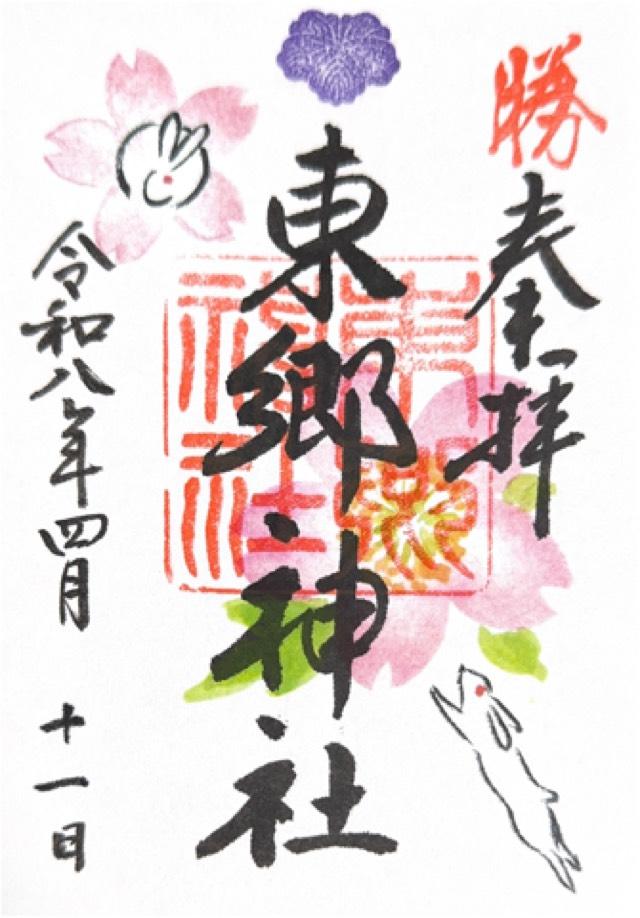 勝
奉拝
東郷神社
東郷神社
令和八年四月 十一日